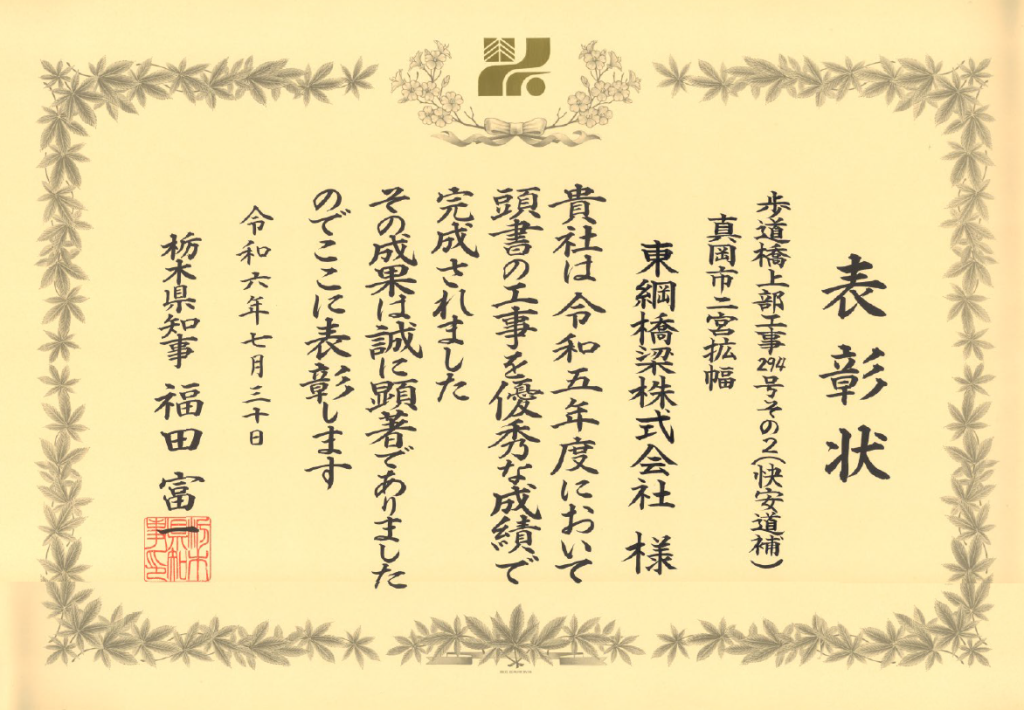 表彰状
歩道橋上部工事294号その2(快安道補)
真岡市二宮拡幅
東綱橋梁株式会社 様
貴社は令和五年度において
頭書の工事を優秀な成績で
完成されました
その成果は誠に顕著でありました
のでここに表彰します
令和六年七月三十日
栃木県知事 福田富一
栃木
県知
事印